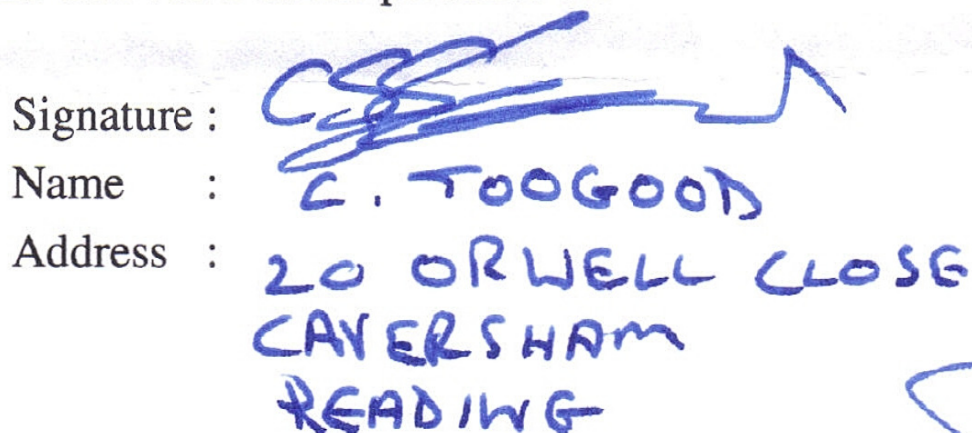 Signature :
Name : C. TOOGOOD
Address : 20 ORWELL CLOSE
CAVERSHAM
READING